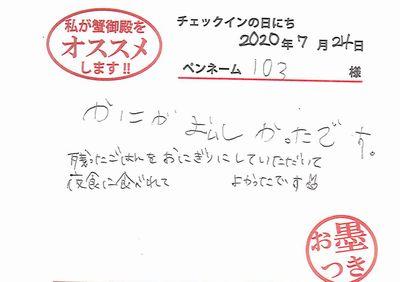 私が蟹御殿を
オススメ
します!!
チェックインの日にち
2020年7月24日
ペンネーム 103 様
かにがおいしかったです。
残ったごはんをおにぎりにしていただいて
夜食に食べれて よかったです
お墨
つき